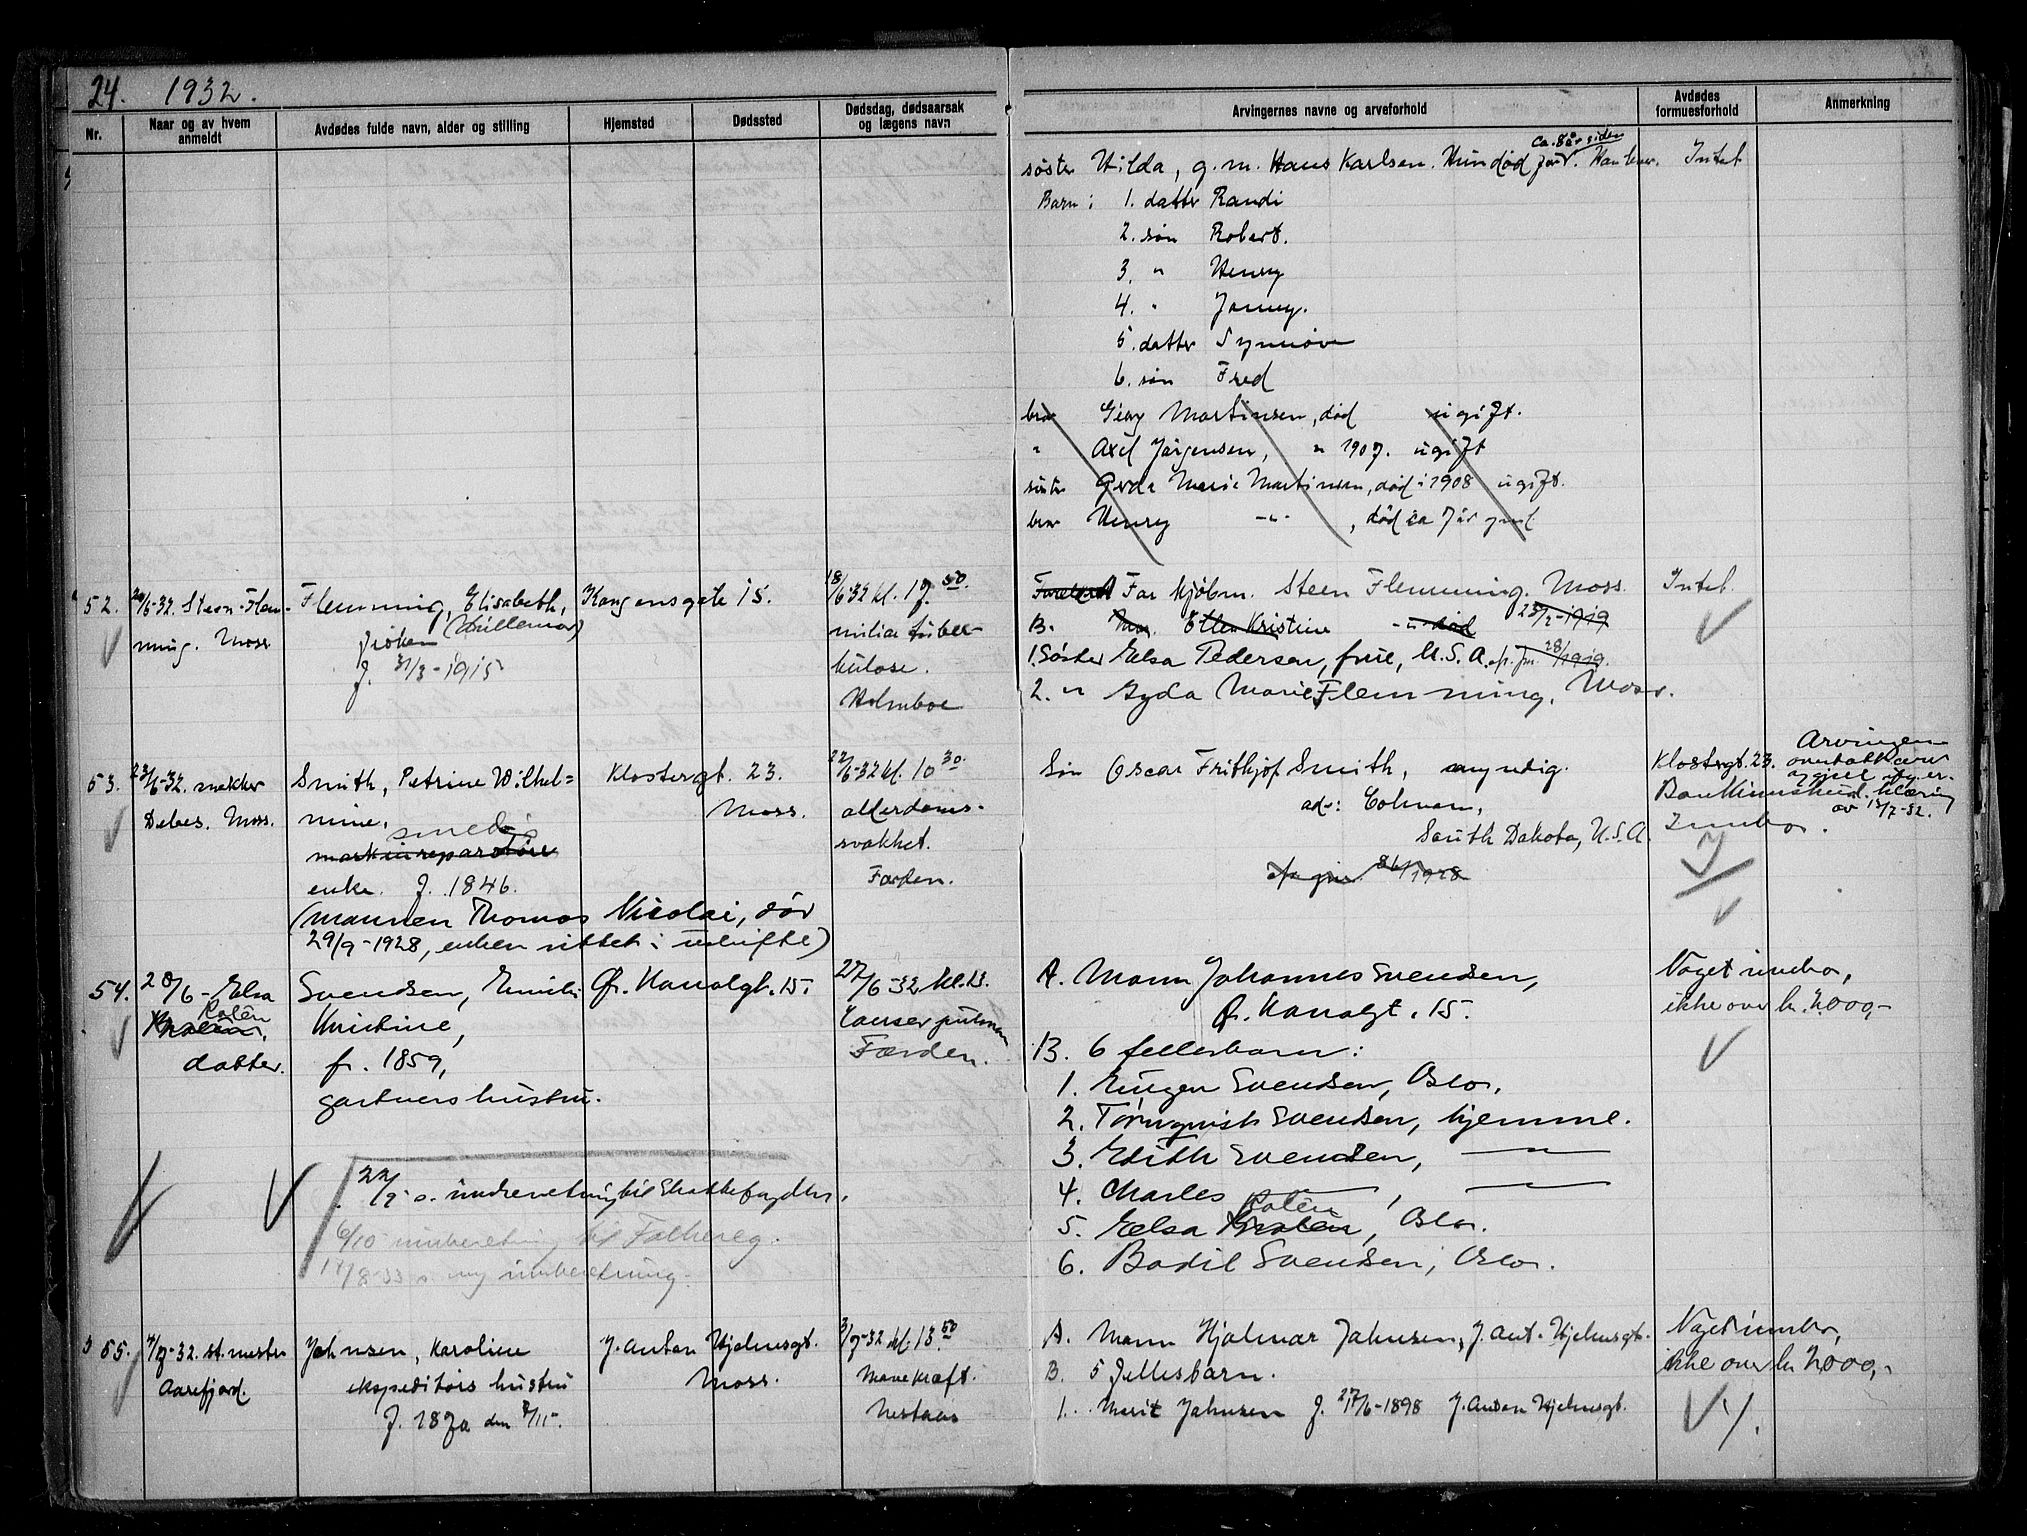 24. 1932.
Nr.
Naar og av hvem anmeldt
Avdødes fulde navn, alder og stilling
Hjemsted
Dødssted
Dødsdag, dødsaarsak og lægens navn
Arvingernes navne og arveforhold
Avdødes formuesforhold
Anmerkning
ca. 8 år siden
søster Hilda, g. m. Hans Karlsen. Hun død for. Han lever. Intet
Barn: 1. datter Randi
2. søn Robert.
3. " Henry
4. " Jonny.
5. datter Synnøve
6. søn Fred
bror Georg Martinsen, død ugift.
" Axel Jørgensen, " 1907. ugift
søster Gerda Marie Martinsen, død i 1908 ugift.
bror Henry -"- , død ca 7 år gml
52. 20/6-32. Steen-Flem-
ming. Moss
Flemming, Elisabeth,
frøken (Hillemor)
f. 31/3-1915
Kongensgate 15.
18/6 32 kl. 17.50.
miliær tuber-
kulose.
Holmboe
Far kjøbm. Steen Flemming. Moss. Intet.
B. Mor. Ellen Kristine -"- død 23/2-1919
1. Søster Elsa Pedersen, frue, U.S.A. 28/1919.
2. " Gyda Marie Flemming, Moss.
53. 23/6-32. snekker
Debes. Moss.
Smith, Petrine Wilhel=
mine,
smeds
maskinreparatørs
enke. f. 1846.
(mannen Thomas Nicolai, død
29/9-1928, enken sittet i uskifte)
Klostergt. 23.
Moss.
22/6-32 kl. 10 30.
alderdoms-
svakhet.
Førden.
Søn Oscar Frithjof Smith, myndig.
adr: Colman,
South Dakota, U.S.A.
1928
Klostergt. 23.
Bankinnskud.
Innbo.
Arvingen
overtatt
av 15/7-32.
54. 28/6 - Elsa
Rolén
datter.
Svendsen, Emilie
Kristine,
f. 1859,
gartners hustru.
Ø. Kanalgt. 15.
27/6-32 kl. 13.
Cancer pulmon
Førden.
A. Mann Johannes Svendsen,
Ø. Kanalgt. 15.
B. 6 fellesbarn:
1. Eugen Svendsen, Oslo.
2. Tørnqvist Svendsen, hjemme.
3. Edith Svendsen, —"—
4. Charles —"—, —"—
5. Elsa Rolén, Oslo.
6. Bodil Svendsen, Oslo.
Noget innbo,
ikke over kr. 2000,-
22/7 s. innberetning til Skattefogden.
6/10 innberetning til Folkereg.
17/8-33 s. ny innberetning.
55. 4/7-32. st. mester
Aarefjord.
Johnsen, Karoline
ekspeditørs hustru
f. 1870 den 8/11-.
J. Anton Hjelmsgt.
Moss.
3/7-32 kl. 13 50
Mavekræft.
Nestaas
A. Mann Hjalmar Johnsen, J. Ant. Hjelmsgt.
B. 5 Fellesbarn.
1. Marit Johnsen f. 27/6-1898 J. Anton Hjelmsgt.
Noget innbo,
ikke over kr 2000,-